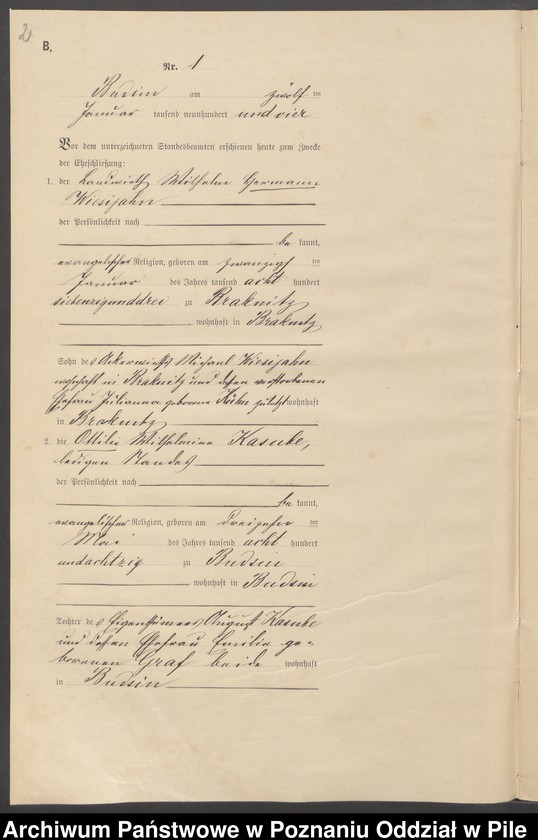 2
B.
Nr. 1
Budsin am zwölf ten
Januar tausend neunhundert und vier
Vor dem unterzeichneten Standesbeamten erschienen heute zum Zwecke
der Eheschließung:
1. der Landwirth Wilhelm Hermann
Wiesijahn
der Persönlichkeit nach
be kannt,
evangelischer Religion, geboren am zwanzigs ten
Januar des Jahres tausend acht hundert
siebenzigunddrei zu Braknitz
, wohnhaft in Braknitz
Sohn des Ackerwirths Michael Wiesijahn
wohnhaft in Braknitz und dessen verstorbenen
Ehefrau Julianna geborene Kühn zuletzt wohnhaft
in Braknitz
2. die Ottilie Wilhelmine Kasube,
ledigen Standes
der Persönlichkeit nach
be kannt,
evangelischer Religion, geboren am dreizehn ten
Mai des Jahres tausend acht hundert
undachtzig zu Budsin
, wohnhaft in Budsin
Tochter des Eigenthümers August Kasube
und dessen Ehefrau Emilie ge-
borenen Graf beide wohnhaft
in Budsin
Archiwum Państwowe w Poznaniu Oddział w Pile